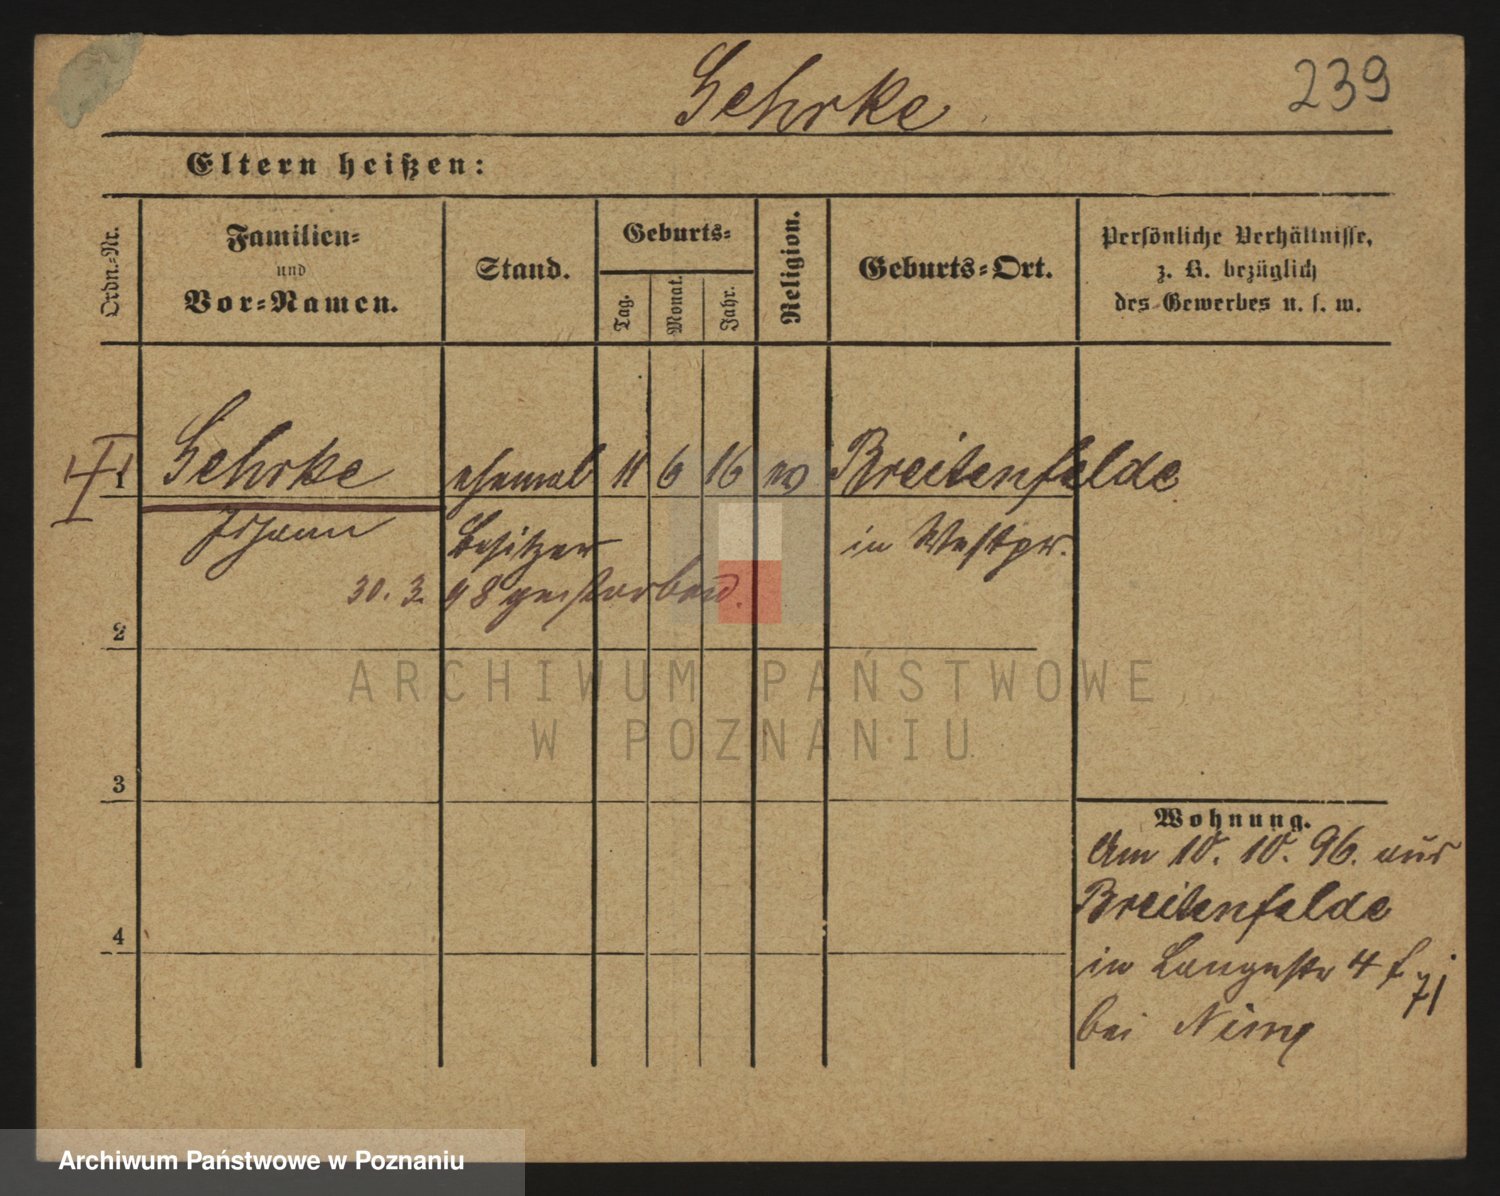 Gehrke
239
Eltern heißen:
Ordn.-Nr.
Familien-
und
Vor-Namen.
Stand.
Geburts-
Tag.
Monat.
Jahr.
Religion.
Geburts-Ort.
Persönliche Verhältnisse,
z. B. bezüglich
des Gewerbes u. s. w.
1 Gehrke ehemal 11 6 16 ev Breitenfelde
Johann Besitzer in Westpr.
30. 3. 98 gestorben.
2
3
4
Wohnung.
Am 10. 10. 96. aus
Breitenfelde
in Langestr 4
71
bei
ARCHIWUM PAŃSTWOWE
W POZNANIU
Archiwum Państwowe w Poznaniu